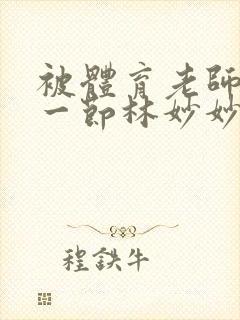 被體育老師
一節林妙妙
程鉄牛